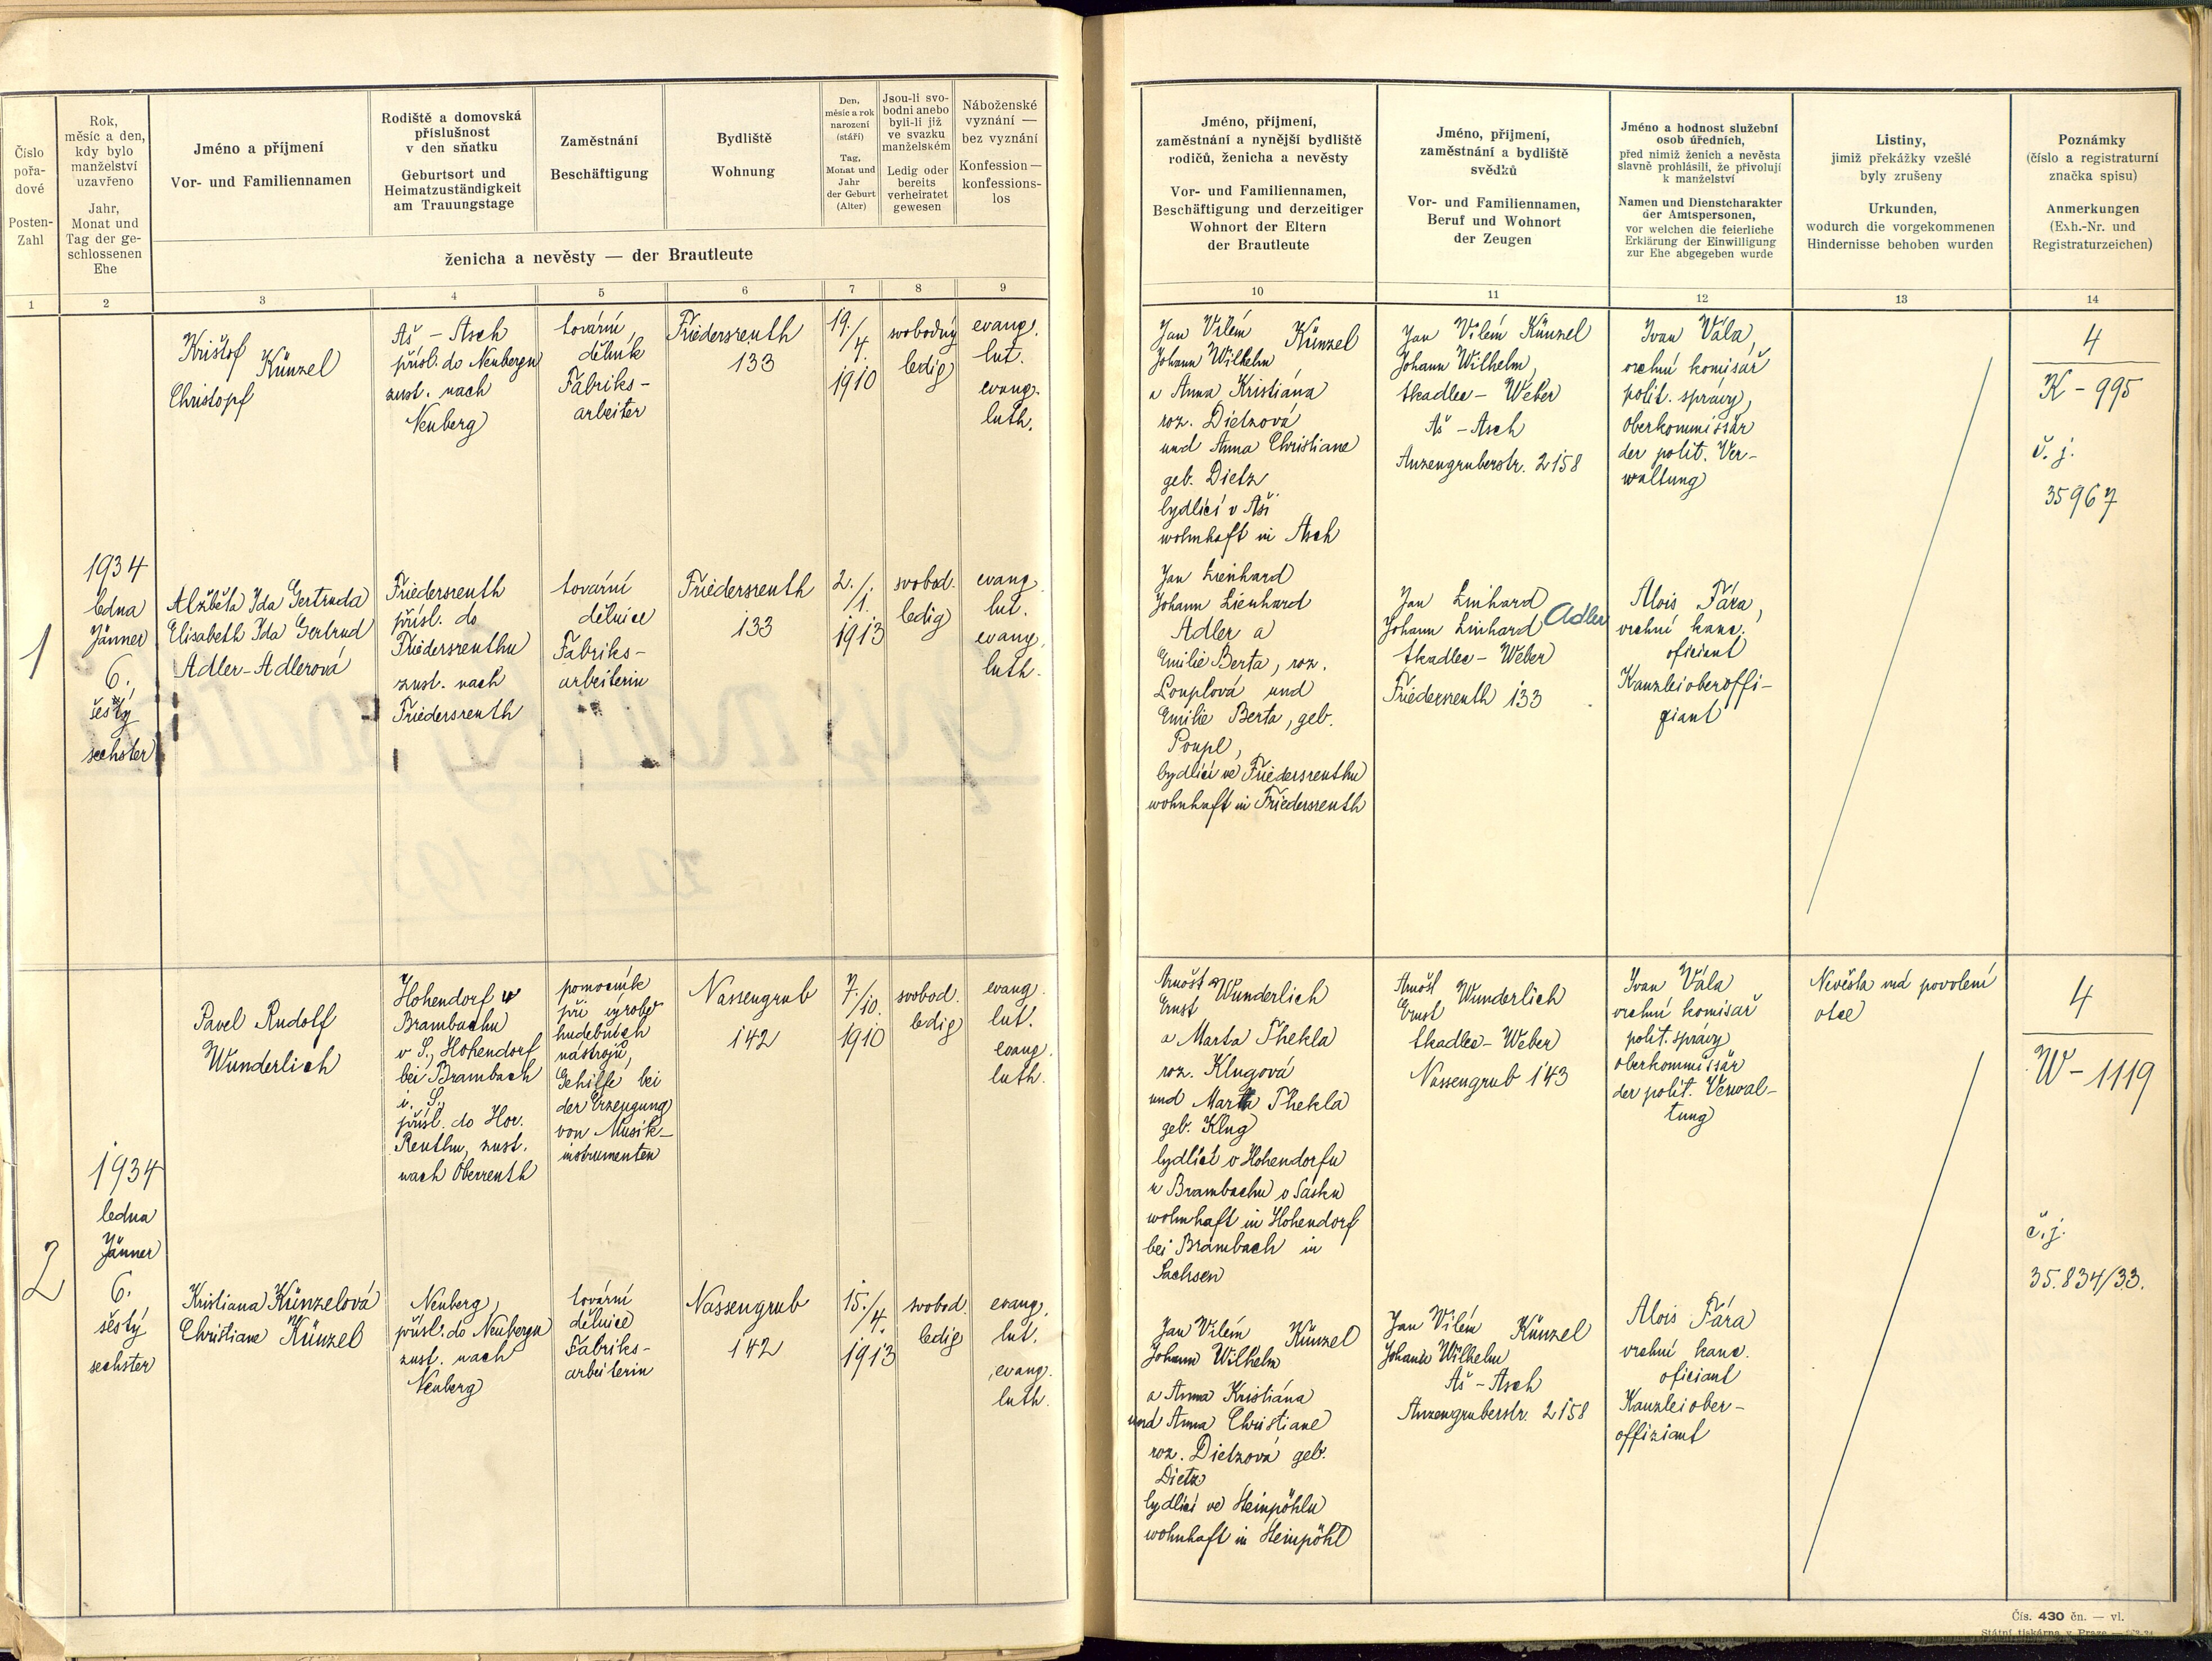 Číslo
pořa-
dové
Posten-
Zahl
Rok,
měsíc a den,
kdy bylo
manželství
uzavřeno
Jahr,
Monat und
Tag der ge-
schlossenen
Ehe
Jméno a příjmení
Vor- und Familiennamen
Rodiště a domovská
příslušnost
v den sňatku
Geburtsort und
Heimatzuständigkeit
am Trauungstage
Zaměstnání
Beschäftigung
Bydliště
Wohnung
Den,
měsíc a rok
narození
(stáří)
Tag,
Monat und
Jahr
der Geburt
(Alter)
Jsou-li svo-
bodni anebo
byli-li již
ve svazku
manželském
Ledig oder
bereits
verheiratet
gewesen
Náboženské
vyznání —
bez vyznání
Konfession —
konfessions-
los
ženicha a nevěsty — der Brautleute
1
2
3
4
5
6
7
8
9
Jméno, příjmení,
zaměstnání a nynější bydliště
rodičů, ženicha a nevěsty
Vor- und Familiennamen,
Beschäftigung und derzeitiger
Wohnort der Eltern
der Brautleute
Jméno, příjmení,
zaměstnání a bydliště
svědků
Vor- und Familiennamen,
Beruf und Wohnort
der Zeugen
Jméno a hodnost služební
osob úředních,
před nimiž ženich a nevěsta
slavně prohlásili, že přivolují
k manželství
Namen und Dienstcharakter
der Amtspersonen,
vor welchen die feierliche
Erklärung der Einwilligung
zur Ehe abgegeben wurde
Listiny,
jimiž překážky vzešlé
byly zrušeny
Urkunden,
wodurch die vorgekommenen
Hindernisse behoben wurden
Poznámky
(číslo a registraturní
značka spisu)
Anmerkungen
(Exh.-Nr. und
Registraturzeichen)
10
11
12
13
14
1
1934
ledna
Jänner
6.
šestý
sechster
Krištof
Künzel
Christopf
Aš - Asch
přísl. do Neubergu
zust. nach
Neuberg
tovární
dělník
Fabriks-
arbeiter
Friedersreuth
133
19./
4.
1910
svobodný
ledig
evang.
lut.
evang.
luth.
Jan Vilém Künzel
Johann Wilhelm
a Anna Kristiána
roz. Dietzová
und Anna Christiane
geb. Dietz
bydlící v Aši
wohnhaft in Asch
Jan Vilém Künzel
Johann Wilhelm,
tkadlec - Weber
Aš - Asch
Anzengruberstr. 2158
Ivan Vála,
vrchní komisař
polit. správy,
Oberkommissär
der polit. Ver-
waltung
4
K - 995
č. j.
35967
Alžběta Ida Gertruda
Elisabeth Ida Gertrud
Adler - Adlerová
Friedersreuth
přísl. do
Friedersreuthu
zust. nach
Friedersreuth
tovární
dělnice
Fabriks-
arbeiterin
Friedersreuth
133
2./
1.
1913
svobod.
ledig
evang.
lut.
evang.
luth.
Jan Lienhard
Johann Lienhard
Adler a
Emilie Berta, roz.
Pouplová und
Emilie Berta, geb.
Poupl,
bydlící ve Friedersreuthu
wohnhaft in Friedersreuth
Jan Linhard
Johann Linhard Adler
tkadlec - Weber
Friedersreuth 133
Alois Fára,
vrchní kanc.
oficiant
Kanzleioberoffi-
ziant
2
1934
ledna
Jänner
6.
šestý
sechster
Pavel Rudolf
Wunderlich
Hohendorf u
Brambachu
v S., Hohendorf
bei Brambach
i. S.,
přísl. do Hor.
Reuthu, zust.
nach Oberreuth
pomocník
při výrobě
hudebních
nástrojů,
Gehilfe bei
der Erzeugung
von Musik-
instrumenten
Nassengrub
142
7./
10.
1910
svobod.
ledig
evang.
lut.
evang.
luth.
Arnošt Wunderlich
Ernst
a Marta Thekla
roz. Klugová
und Marta Thekla
geb. Klug
bydlící v Hohendorfu
u Brambachu v Sasku
wohnhaft in Hohendorf
bei Brambach in
Sachsen
Arnošt Wunderlich
Ernst
tkadlec - Weber
Nassengrub 143
Ivan Vála
vrchní komisař
polit. správy
Oberkommissär
der polit. Verwal-
tung
Nevěsta má povolení
otce
4
W - 1119
č. j.
35.834/33.
Kristiana Künzelová
Christiane Künzel
Neuberg,
přísl. do Neubergu
zust. nach
Neuberg
tovární
dělnice
Fabriks-
arbeiterin
Nassengrub
142
15./
4.
1913
svobod.
ledig
evang.
lut.
evang.
luth.
Jan Vilém Künzel
Johann Wilhelm
a Anna Kristiána
und Anna Christiane
roz. Dietzová geb.
Dietz
bydlící ve Heinpöhlu
wohnhaft in Heinpöhl
Jan Vilém Künzel
Johann Wilhelm
Aš - Asch
Anzengruberstr. 2158
Alois Fára
vrchní kanc.
oficiant
Kanzleiober-
offiziant
Čís. 430 čn. — vl.
Státní tiskárna v Praze